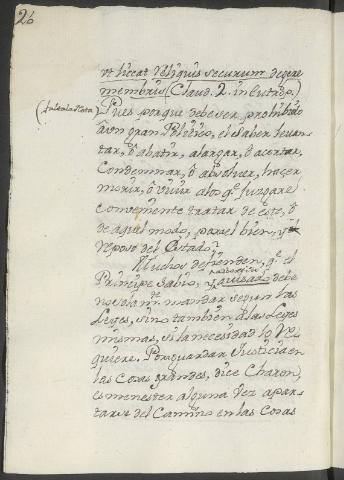 26
ut liceat reliquis securum degere
membris (Claud. 2. in Eutrop.)
(falta la Nota)
Pues porque debe ser prohibido
à un gran Politico, el saber levan-
tar, ò abatir, alargar, ò acortar,
Condemnar, ò absolver, hacer
morir, ò vivir a los q.e juzgare
conveniente tratar de este, ò
de aquel modo, para el bien, y el
reposo del Estado?
Muchos defienden, q.e el
Principe Sabio, y avisado debe
no solam.te mandar segun las
Leyes, sino tambien à las Leyes
mismas, si la necesidad lo re-
quiere. Para guardar Justicia en
las Cosas grandes, dice Charon,
es menester alguna vez apar-
tarse del Camino en las Cosas